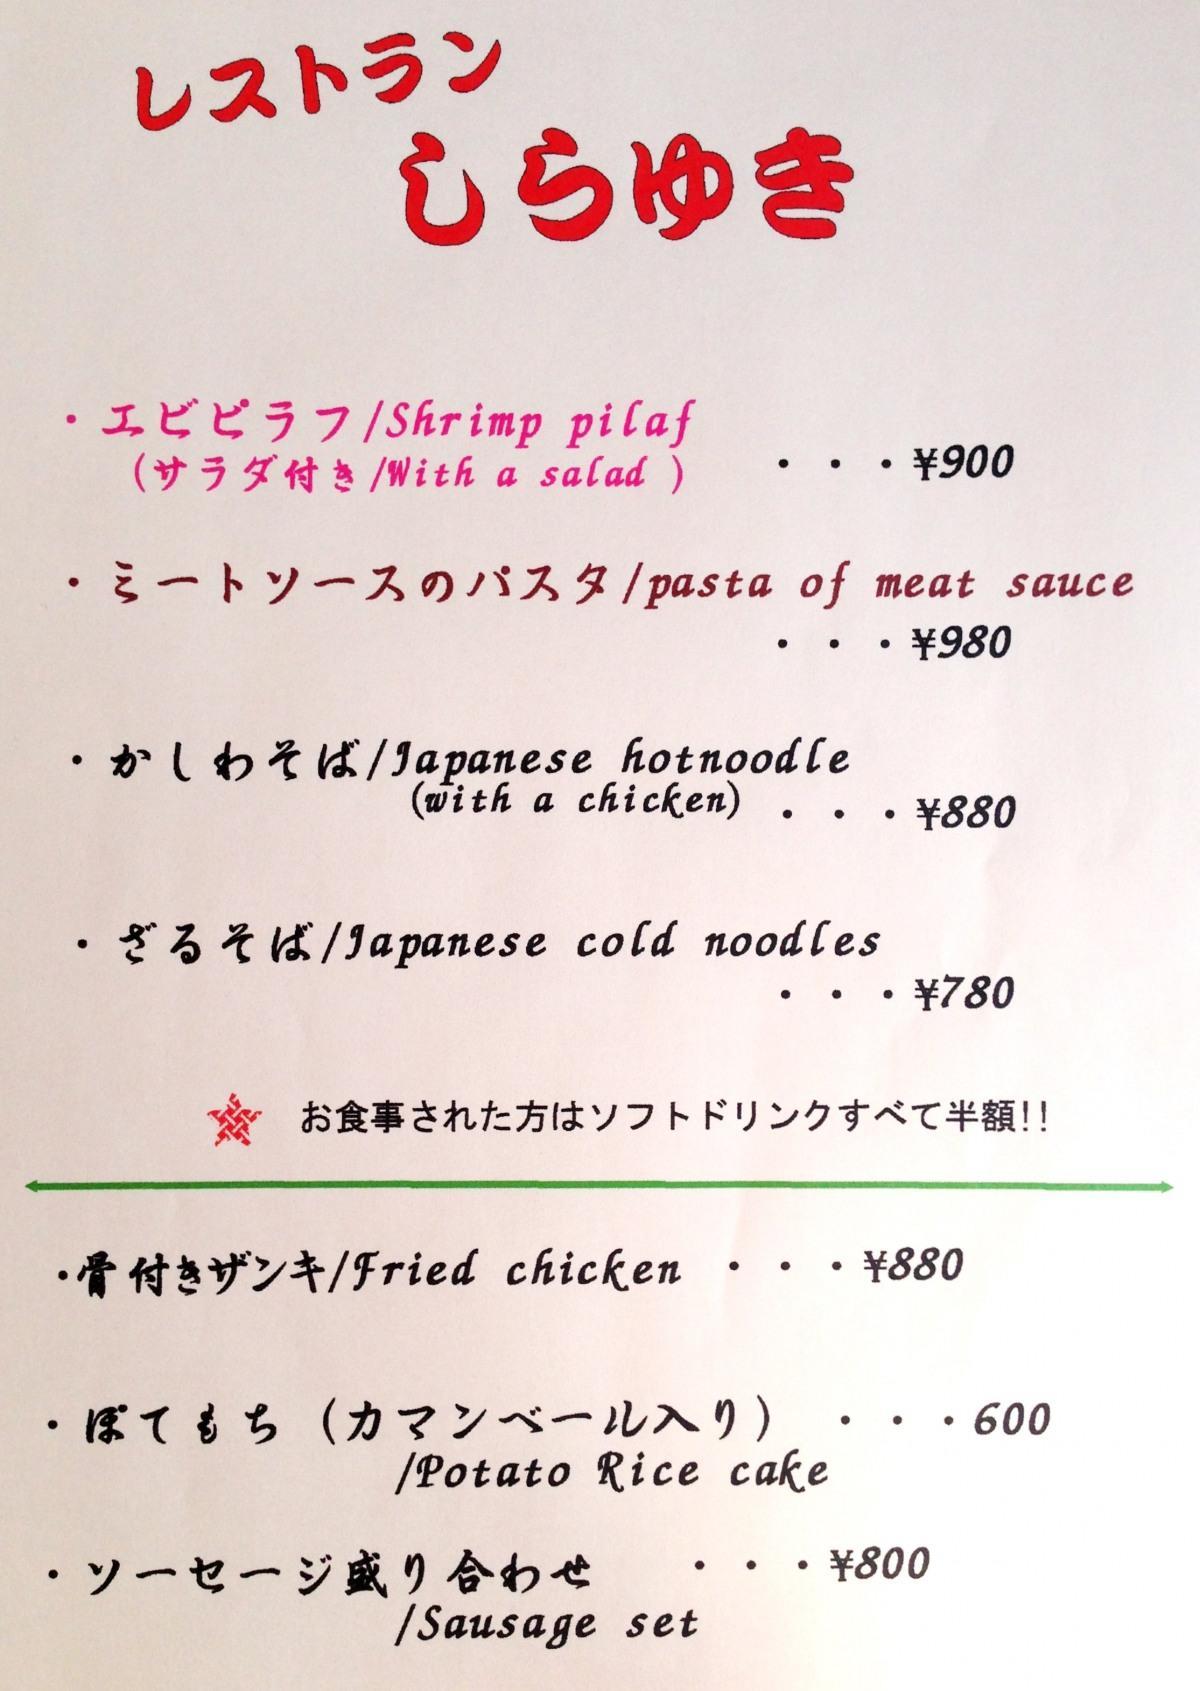 レストラン
しらゆき
・エビピラフ/Shrimp pilaf
(サラダ付き/With a salad )
・・・¥900
・ミートソースのパスタ/pasta of meat sauce
・・・¥980
・かしわそば/Japanese hotnoodle
(with a chicken)
・・・¥880
・ざるそば/Japanese cold noodles
・・・¥780
お食事された方はソフトドリンクすべて半額!!
・骨付きザンキ/Fried chicken ・・・¥880
・ぽてもち（カマンベール入り） ・・・600
/Potato Rice cake
・ソーセージ盛り合わせ ・・・¥800
/Sausage set